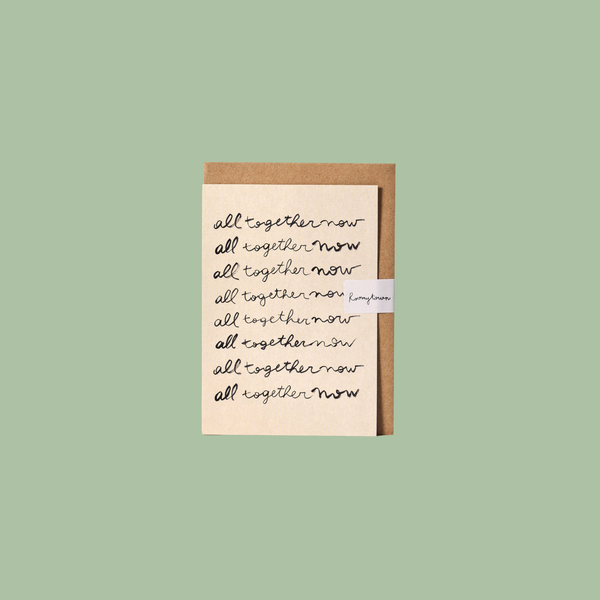 all together now
all together now
all together now
all together now
Roomytown
all together now
all together now
all together now
all together now